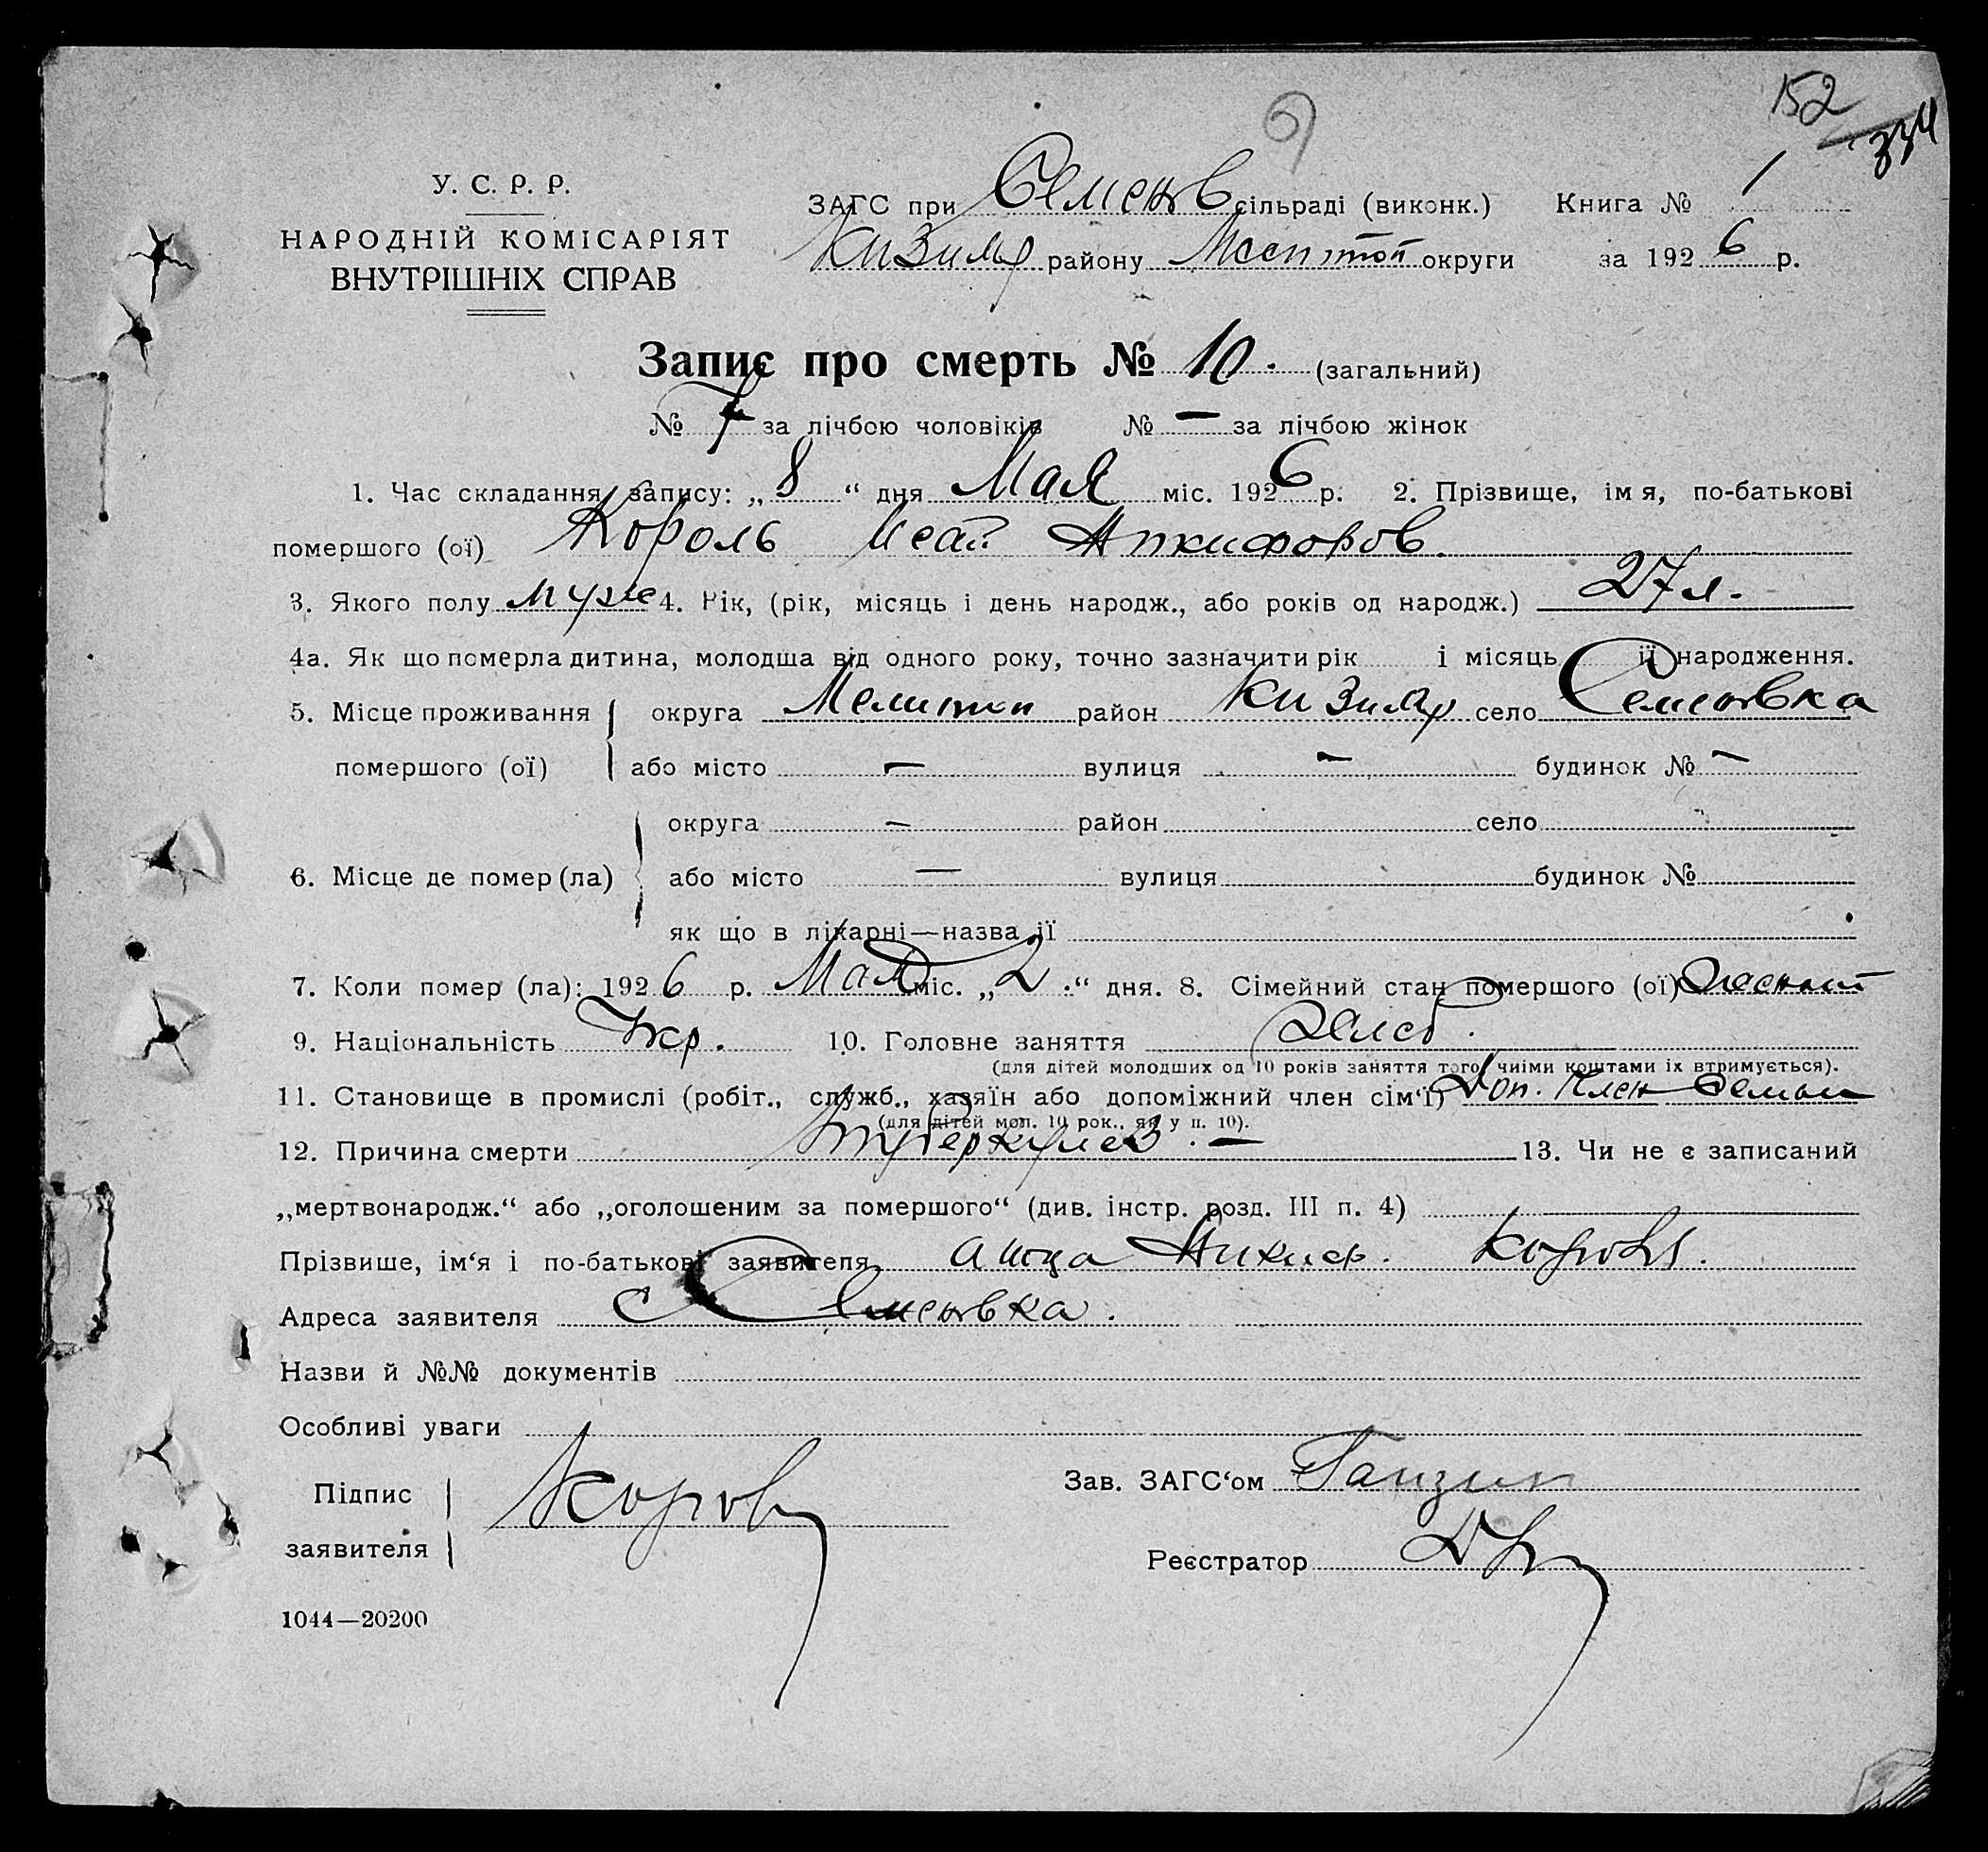 152
334
У. С. Р. Р.
НАРОДНІЙ КОМІСАРІЯТ
ВНУТРІШНІХ СПРАВ
ЗАГС при Семенов сільраді (виконк.) Книга № 1
Кизияр району округи за 1926 р.
Запис про смерть № 10. (загальний)
№ 7 за лічбою чоловіків № — за лічбою жінок
1. Час складання запису: „8“ дня Мая міс. 1926 р. 2. Прізвище, імя, по-батькові
помершого (ої) Король Исай Никифоров.
3. Якого полу муж 4. Рік, (рік, місяць і день народж., або років од народж.) 27 л.
4а. Як що померла дитина, молодша від одного року, точно зазначити рік і місяць її народження.
5. Місце проживання округа Мелитоп район Кизияр село Семеновка
помершого (ої) або місто — вулиця — будинок № —
округа — район село
6. Місце де помер (ла) або місто — вулиця будинок №
як що в лікарні—назва її
7. Коли помер (ла): 1926 р. Мая міс. „2.“ дня. 8. Сімейний стан помершого (ої) женат
9. Національність Укр. 10. Головне заняття хлеб.
(для дітей молодших од 10 років заняття того, чиіми коштами іх втримується).
11. Становище в промислі (робіт., служб., хазяїн або допоміжний член сім‘ї) Доп. член семьи
(для дітей мол. 10 рок., як у п. 10).
12. Причина смерти туберкулез. — 13. Чи не є записаний
„мертвонародж.“ або „оголошеним за помершого“ (див. інстр. розд. III п. 4)
Прізвише, ім‘я і по-батькові заявителя Никиф.
Адреса заявителя с Семеновка.
Назви й №№ документів
Особливі уваги
Підпис
заявителя
Зав. ЗАГС‘ом
Реєстратор
1044—20200